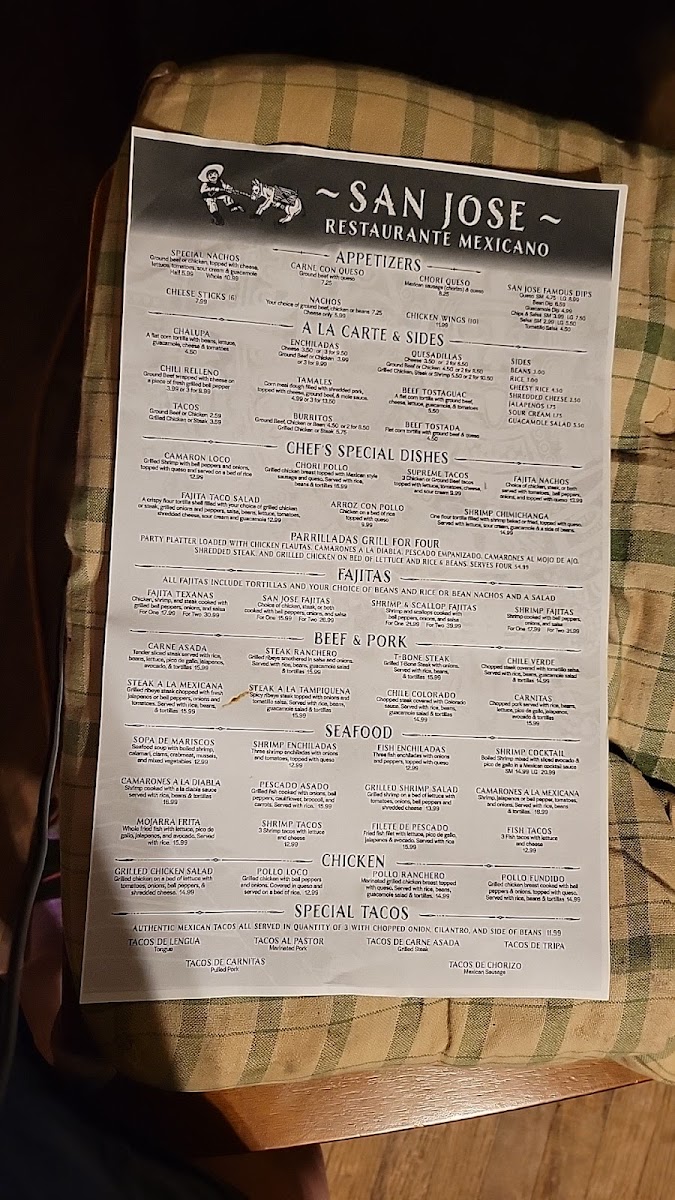 ~ SAN JOSE ~
RESTAURANTE MEXICANO
APPETIZERS
SPECIAL NACHOS
Ground beef or chicken, topped with cheese,
lettuce, tomatoes, sour cream & guacamole
Half 5.99 Whole 10.99
CARNE CON QUESO
Ground beef with queso
7.25
CHORI QUESO
Mexican sausage (chorizo) & queso
8.25
SAN JOSE FAMOUS DIPS
Queso SM 4.75 LG 8.99
Bean Dip 6.59
Guacamole Dip 4.99
Chips & Salsa SM 3.99 LG 7.50
Salsa SM 2.99 LG 5.50
Tomatillo Salsa 4.50
CHEESE STICKS (6)
7.99
NACHOS
Your choice of ground beef, chicken or beans 7.25
Cheese only 5.99
CHICKEN WINGS (10)
11.99
A LA CARTE & SIDES
CHALUPA
A flat corn tortilla with beans, lettuce,
guacamole, cheese & tomatoes
4.50
ENCHILADAS
Cheese 3.50 or 3 for 9.50
Ground Beef or Chicken 3.99
or 3 for 9.99
QUESADILLAS
Cheese 3.50 or 2 for 6.50
Ground Beef or Chicken 4.50 or 2 for 8.50
Grilled Chicken, Steak or Shrimp 5.50 or 2 for 10.50
SIDES
BEANS 3.00
RICE 3.00
CHEESY RICE 4.50
SHREDDED CHEESE 2.50
JALAPENOS 1.75
SOUR CREAM 1.75
GUACAMOLE SALAD 3.50
CHILI RELLENO
Ground beef wrapped with cheese on
a piece of fresh grilled bell pepper
3.99 or 3 for 9.99
TAMALES
Corn meal dough filled with shredded pork,
topped with cheese, ground beef, & mole sauce.
4.99 or 3 for 13.50
BEEF TOSTAGUAC
A flat corn tortilla with ground beef,
cheese, lettuce, guacamole, & tomatoes
5.50
TACOS
Ground Beef or Chicken 2.59
Grilled Chicken or Steak 3.59
BURRITOS
Ground Beef, Chicken or Bean 4.50 or 2 for 8.50
Grilled Chicken or Steak 5.75
BEEF TOSTADA
Flat corn tortilla with ground beef & queso
4.50
CHEF'S SPECIAL DISHES
CAMARON LOCO
Grilled Shrimp with bell peppers and onions,
topped with queso and served on a bed of rice
12.99
CHORI POLLO
Grilled chicken breast topped with Mexican style
sausage and queso. Served with rice,
beans & tortillas 16.99
SUPREME TACOS
3 Chicken or Ground Beef tacos
topped with lettuce, tomatoes, cheese,
and sour cream 9.99
FAJITA NACHOS
Choice of chicken, steak, or both
served with tomatoes, bell peppers,
onions, and topped with queso 13.99
FAJITA TACO SALAD
A crispy flour tortilla shell filled with your choice of grilled chicken
or steak, grilled onions and bell peppers, salsa, beans, lettuce, tomatoes,
shredded cheese, sour cream and guacamole 12.99
ARROZ CON POLLO
Chicken on a bed of rice
topped with queso
9.99
SHRIMP CHIMICHANGA
One flour tortilla filled with shrimp baked or fried, topped with queso.
Served with lettuce, sour cream, guacamole & a side of beans.
14.99
PARRILLADAS GRILL FOR FOUR
PARTY PLATTER LOADED WITH CHICKEN FLAUTAS, CAMARONES A LA DIABLA, PESCADO EMPANIZADO, CAMARONES AL MOJO DE AJO,
SHREDDED STEAK, AND GRILLED CHICKEN ON BED OF LETTUCE AND RICE & BEANS. SERVES FOUR 54.99
FAJITAS
ALL FAJITAS INCLUDE TORTILLAS AND YOUR CHOICE OF BEANS AND RICE OR BEAN NACHOS AND A SALAD
FAJITA TEXANAS
Chicken, shrimp, and steak cooked with
grilled bell peppers, onions, and salsa
For One 17.99 For Two 30.99
SAN JOSE FAJITAS
Choice of chicken, steak, or both
cooked with bell peppers, onions, and salsa
For One 15.99 For Two 28.99
SHRIMP & SCALLOP FAJITAS
Shrimp and scallops cooked with
bell peppers, onions, and salsa
For One 21.99 For Two 39.99
SHRIMP FAJITAS
Shrimp cooked with bell peppers,
onions, and salsa
For One 17.99 For Two 31.99
BEEF & PORK
CARNE ASADA
Tender sliced steak served with rice,
beans, lettuce, pico de gallo, jalapenos,
avocado, & tortillas 15.99
STEAK RANCHERO
Grilled ribeye smothered in salsa and onions.
Served with rice, beans, guacamole
salad & tortillas 15.99
T-BONE STEAK
Grilled T-Bone Steak with onions.
Served with rice, beans,
& tortillas 15.99
CHILE VERDE
Chopped steak covered with tomatillo salsa.
Served with rice, beans, guacamole
salad & tortillas 14.99
STEAK A LA MEXICANA
Grilled ribeye steak chopped with fresh
jalapenos or bell peppers, onions and
tomatoes. Served with rice, beans,
& tortillas 15.99
STEAK A LA TAMPIQUENA
Spicy ribeye steak topped with onions and
tomatillo salsa. Served with rice, beans,
guacamole salad & tortillas
15.99
CHILE COLORADO
Chopped steak covered with Colorado
sauce. Served with rice, beans,
guacamole salad & tortillas
14.99
CARNITAS
Chopped pork served with rice, beans,
lettuce, pico de gallo, jalapenos,
avocado & tortillas
15.99
SEAFOOD
SOPA DE MARISCOS
Seafood soup with boiled shrimp,
calamari, clams, crabmeat, mussels,
and mixed vegetables 12.99
SHRIMP ENCHILADAS
Three shrimp enchiladas with onions
and tomatoes, topped with queso
12.99
FISH ENCHILADAS
Three fish enchiladas with onions
and peppers, topped with queso.
12.99
SHRIMP COCKTAIL
Boiled Shrimp mixed with sliced avocado &
pico de gallo in a Mexican cocktail sauce
SM 14.99 LG 20.99
CAMARONES A LA DIABLA
Shrimp cooked with a la diabla sauce
served with rice, beans & tortillas
16.99
PESCADO ASADO
Grilled fish cooked with onions, bell
peppers, cauliflower, broccoli, and
carrots. Served with rice. 15.99
GRILLED SHRIMP SALAD
Grilled shrimp on a bed of lettuce with
tomatoes, onions, bell peppers and
shredded cheese 13.99
CAMARONES A LA MEXICANA
Shrimp, jalapenos or bell pepper, tomatoes,
and onions. Served with rice, beans
& tortillas 16.99
MOJARRA FRITA
Whole fried fish with lettuce, pico de
gallo, jalapenos, and avocado. Served
with rice 15.99
SHRIMP TACOS
3 Shrimp tacos with lettuce
and cheese
12.99
FILETE DE PESCADO
Fried fish filet with lettuce, pico de gallo,
jalapenos & avocado. Served with rice
15.99
FISH TACOS
3 Fish tacos with lettuce
and cheese
12.99
CHICKEN
GRILLED CHICKEN SALAD
Grilled chicken on a bed of lettuce with
tomatoes, onions, bell peppers, &
shredded cheese. 14.99
POLLO LOCO
Grilled chicken with bell peppers
and onions. Covered in queso and
served on a bed of rice. 12.99
POLLO RANCHERO
Marinated grilled chicken breast topped
with queso. Served with rice, beans,
guacamole salad & tortillas 14.99
POLLO FUNDIDO
Grilled chicken breast cooked with bell
peppers & onions, topped with queso.
Served with rice, beans & tortillas 14.99
SPECIAL TACOS
AUTHENTIC MEXICAN TACOS ALL SERVED IN QUANTITY OF 3 WITH CHOPPED ONION, CILANTRO, AND SIDE OF BEANS 11.99
TACOS DE LENGUA
Tongue
TACOS AL PASTOR
Marinated Pork
TACOS DE CARNE ASADA
Grilled Steak
TACOS DE TRIPA
TACOS DE CARNITAS
Pulled Pork
TACOS DE CHORIZO
Mexican Sausage